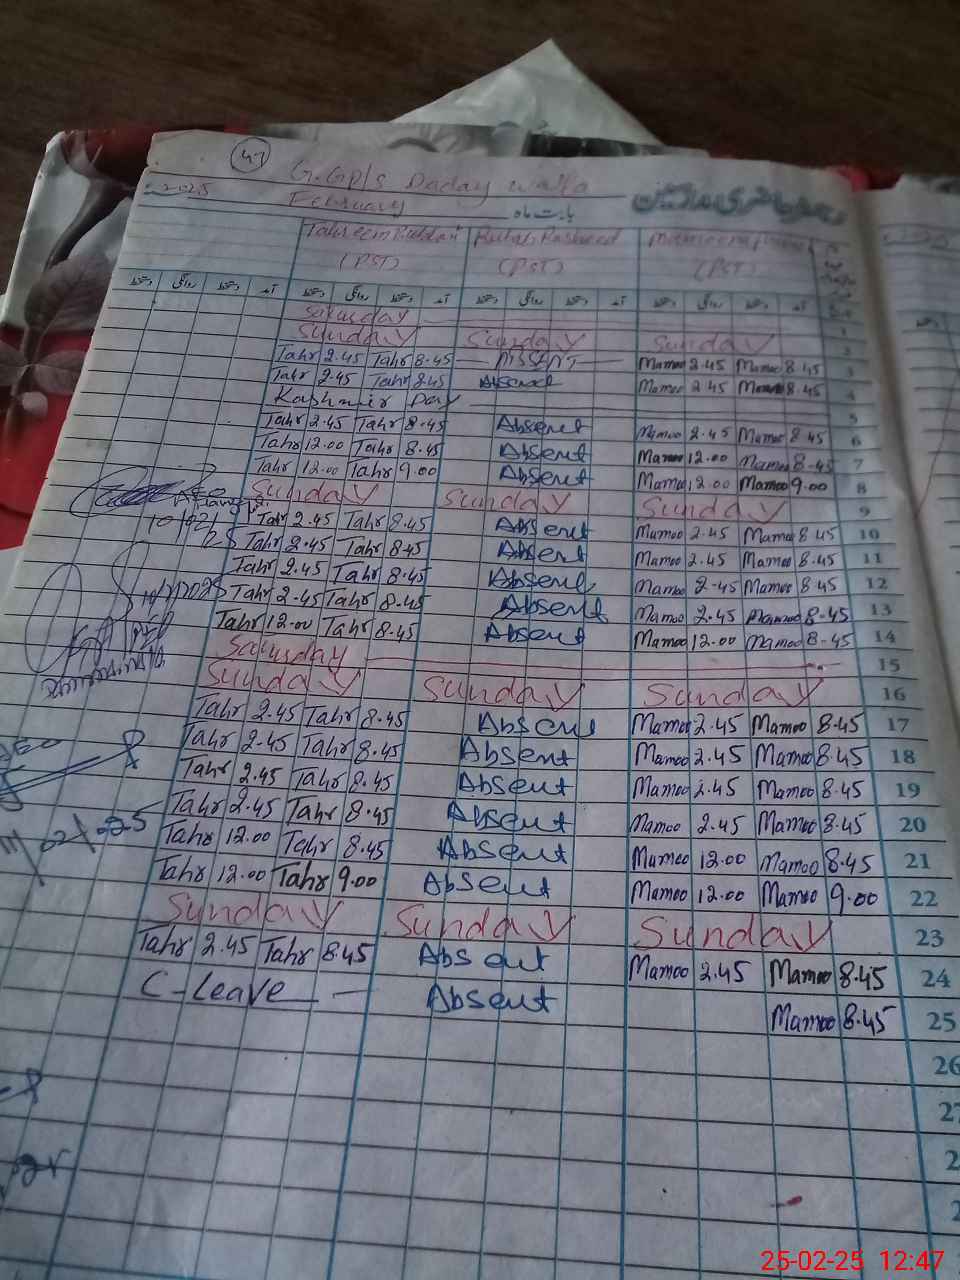 47
G.Gp/s Daday walla
2025 February بابت ماہ
Rubab Rasheed
(PST) (PST) (PST)
آمد دستخط روانگی دستخط آمد دستخط روانگی دستخط آمد دستخط روانگی دستخط آمد
Saturday 1
Sunday Sunday Sunday 2
Tahr 2.45 Tahr 8.45 Mamoo 2.45 Mamoo 8.45 3
Tahr 2.45 Tahr 8.45 Absent Mamoo 2.45 Mamoo 8.45 4
Kashmir Day 5
Tahr 2.45 Tahr 8.45 Absent Mamoo 2.45 Mamoo 8.45 6
Tahr 12.00 Tahr 8.45 Absent Mamoo 12.00 Mamoo 8.45 7
Tahr 12.00 Tahr 9.00 Absent Mamoo 12.00 Mamoo 9.00 8
Sunday Sunday Sunday 9
Tahr 2.45 Tahr 8.45 Absent Mamoo 2.45 Mamoo 8.45 10
Tahr 2.45 Tahr 8.45 Absent Mamoo 2.45 Mamoo 8.45 11
Tahr 2.45 Tahr 8.45 Absent Mamoo 2.45 Mamoo 8.45 12
Tahr 2.45 Tahr 8.45 Absent Mamoo 2.45 Mamoo 8.45 13
Tahr 12.00 Tahr 8.45 Absent Mamoo 12.00 Mamoo 8.45 14
Saturday 15
Sunday Sunday Sunday 16
Tahr 2.45 Tahr 8.45 Absent Mamoo 2.45 Mamoo 8.45 17
Tahr 2.45 Tahr 8.45 Absent Mamoo 2.45 Mamoo 8.45 18
Tahr 2.45 Tahr 8.45 Absent Mamoo 2.45 Mamoo 8.45 19
Tahr 2.45 Tahr 8.45 Absent Mamoo 2.45 Mamoo 8.45 20
Tahr 12.00 Tahr 8.45 Absent Mamoo 12.00 Mamoo 8.45 21
Tahr 12.00 Tahr 9.00 Absent Mamoo 12.00 Mamoo 9.00 22
Sunday Sunday Sunday 23
Tahr 2.45 Tahr 8.45 Absent Mamoo 2.45 Mamoo 8.45 24
C-Leave Absent Mamoo 8.45 25
26
25-02-25 12:47